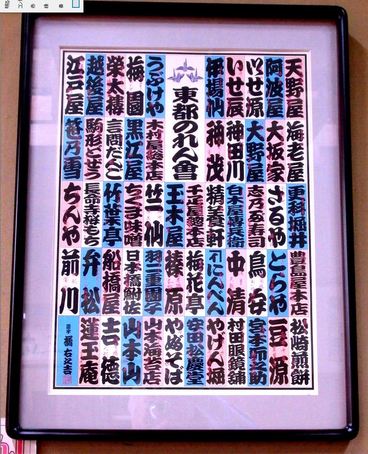 東都のれん會
天野屋
海老屋
更科堀井
豊島屋本店
松崎煎餅
阿波屋
大坂家
さるや
とらや
豆源
いせ源
大野屋
志乃多寿司
鳥安
宮本卯之助
いせ辰
神田川
白木屋傳兵衛
中清
村田眼鏡舗
伊場仙
神茂
精養軒
にんべん
やげん堀
千疋屋總本店
梅花亭
安田松慶堂
うぶけや
木村屋總本店
玉木屋
榛原
やぶそば
梅園
黒江屋
竹仙
羽二重團子
山本海苔店
榮太樓
言問だんご
ちくま味噌
日本橋鮒佐
山本山
越後屋
駒形どぜう
竹笹木亭
船橋屋
吉徳
江戸屋
笹乃雪
長命寺桜もち
弁松
蓮玉庵
ちんや
前川
橘右之吉